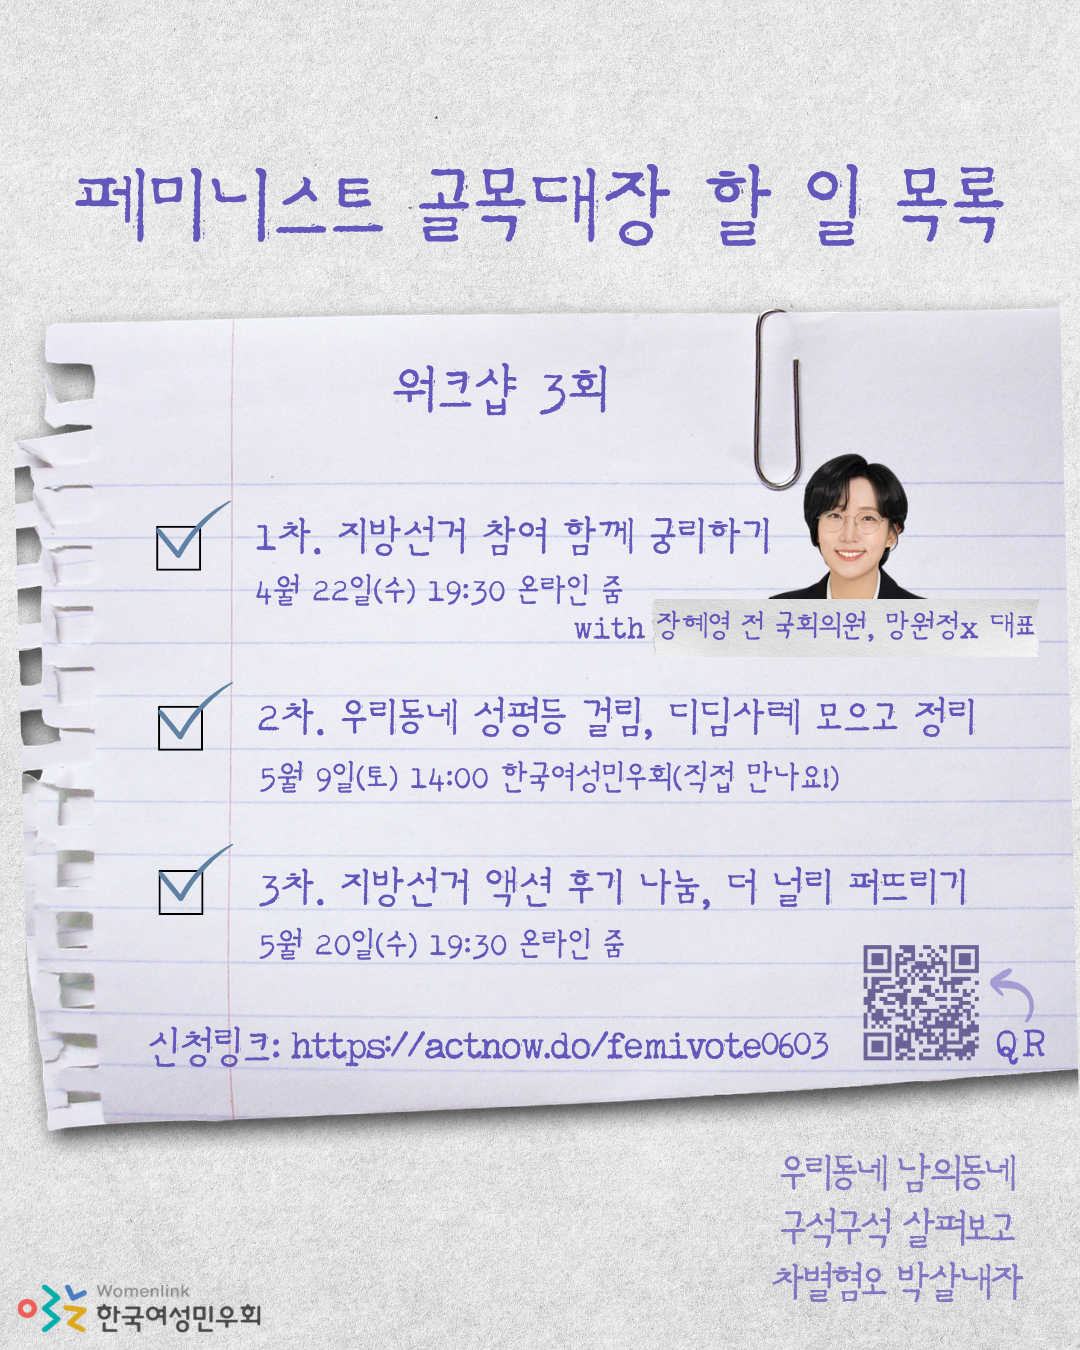 페미니스트 골목대장 할 일 목록
워크샵 3회
1차. 지방선거 참여 함께 궁리하기
4월 22일(수) 19:30 온라인 줌
with 장혜영 전 국회의원, 망원정x 대표
2차. 우리동네 성평등 걸림, 디딤사례 모으고 정리
5월 9일(토) 14:00 한국여성민우회(직접 만나요!)
3차. 지방선거 액션 후기 나눔, 더 널리 퍼뜨리기
5월 20일(수) 19:30 온라인 줌
신청링크: https://actnow.do/femivote0603
QR
우리동네 남의동네
구석구석 살펴보고
차별혐오 박살내자
Womenlink
한국여성민우회